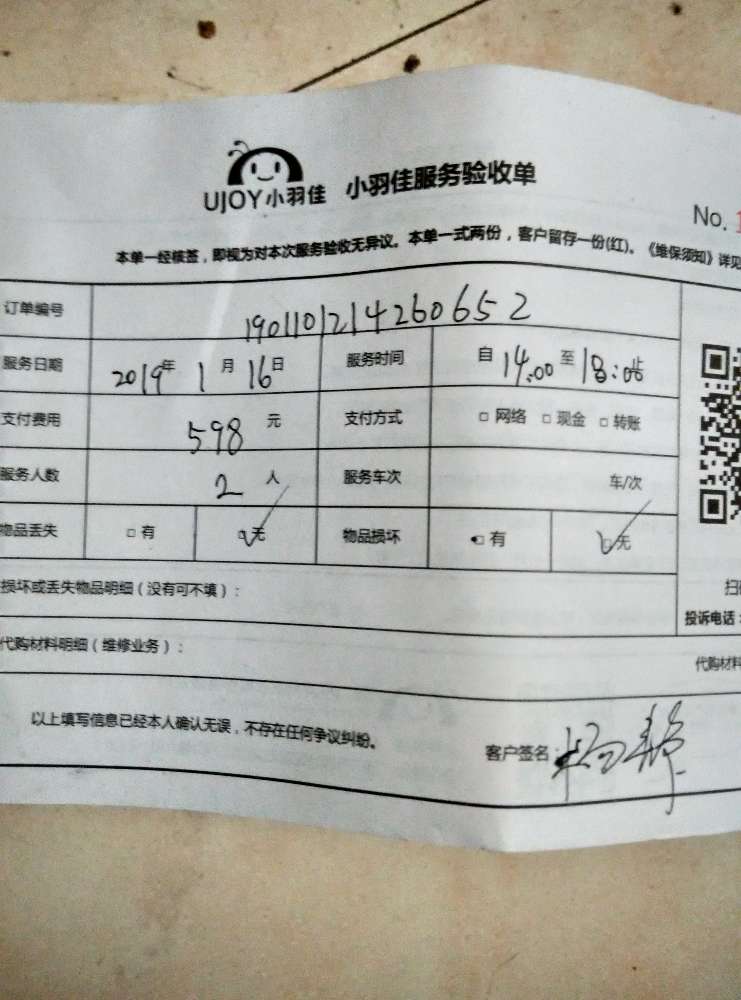 UJOY小羽佳 小羽佳服务验收单
No. 1
本单一经核签，即视为对本次服务验收无异议。本单一式两份，客户留存一份(红)。《维保须知》详见
订单编号 190110121426065 2
服务日期 2019年 1月 16日 服务时间 自 14:00 至 18:00
支付费用 598 元 支付方式 □ 网络 □ 现金 □ 转账
服务人数 2 人 服务车次 车/次
物品丢失 □ 有 □ 无 物品损坏 □ 有 □ 无
损坏或丢失物品明细（没有可不填）：
扫
投诉电话：
代购材料明细（维修业务）：
代购材料
以上填写信息已经本人确认无误，不存在任何争议纠纷。
客户签名：杨静